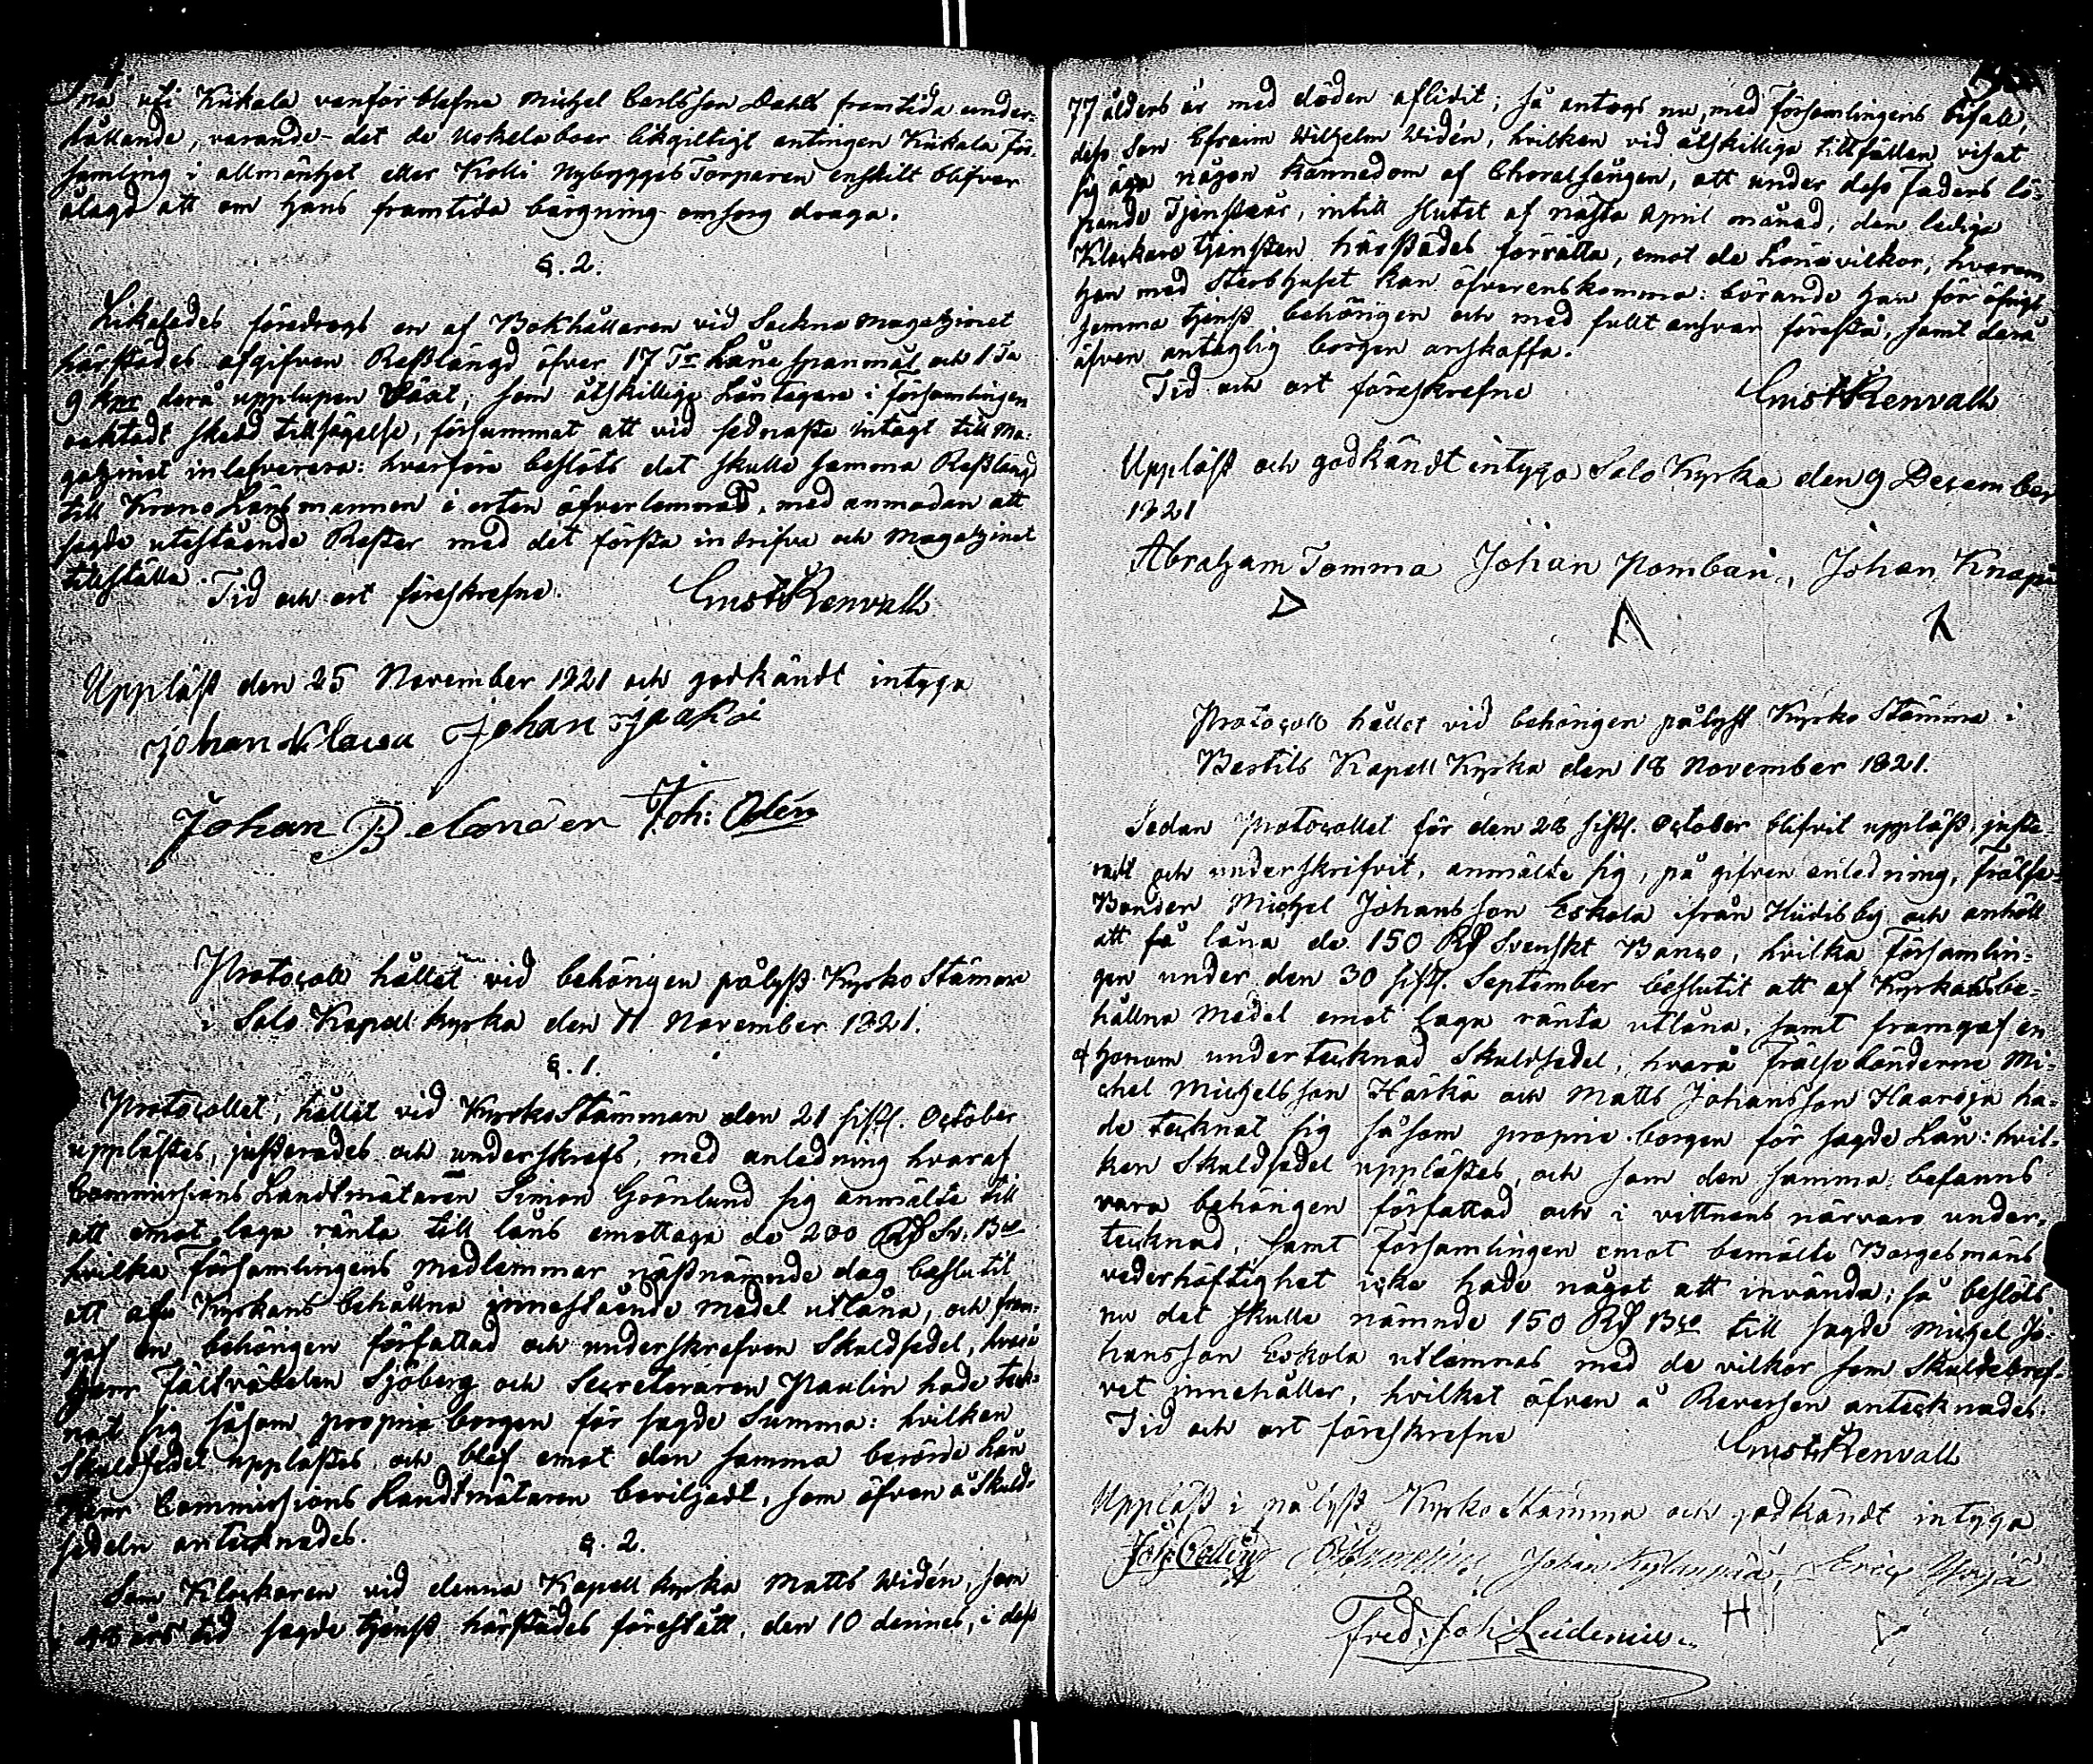 na uti Kiikala vanför blefne Michel Carlsson Dahls framtida under=
hållande, varande det de Uskela boer likgiltigt antingen Kiikala För=
samling i allmänhet eller Kolli Nybygges Torparen enskilt blifver
ålagd att om hans framtida bärgning omsorg draga.
§. 2.
Likaledes föredrogs en af Bokhållaren vid Sockne Magatzinet
härstädes afgifven Restlängd öfver 17 Tr Låne spanmål och 1 Ta
9 kpr derå upplupen Växt, som åtskillige Låntagare i församlingen
oaktadt skedd tillsägelse, försummat att vid sednaste intägt till Ma=
gatzinet inlefverera: hvarföre beslöts det skulle samma Restlängd
till Krono Länsmannen i orten öfverlemnad, med anmodan att
sagde utestående Rester med det första indrifva och Magatzinet
tillställa.
Tid och ort föreskrefne.
Gust Renvall
Uppläst den 25 November 1821 och godkändt intyga
Johan Klaisu Johan Jaakoi
Johan Belander Joh: Odén
Protocoll hållet vid behörigen pålyst Kyrko Stämma
i Salo Kapell kyrka den 11 November 1821.
§. 1.
Protocollet, hållet vid Kyrko Stämman den 21 sistl. October
upplästes, justerades och underskrefs, med anledning hvaraf
Commissions Landtmätaren Simon Grönlund sig anmälte till
att emot laga ränta till låns emottaga de 200 Rd Sv. Bco
hvilka Församlingens medlemmar nästnämnde dag beslutit
att af Kyrkans behållna innestående medel utlåna, och fram=
gaf en behörigen författad och underskrefven Skuldsedel, hvarå
Herr Fältväbelen Sjöberg och Secreteraren Paulin hade teck=
nat sig såsom proprie borgen för sagde Summa: hvilken
Skuldsedel upplästes och blef emot den samma berörde Lån
Herr Commissions Landtmätaren beviljadt, som äfven å Skuld=
sedeln antecknades.
§. 2.
Som Klockaren vid denna Kapell kyrka Matts Widén, som
i 48 års tid sagde tjenst härstädes förestått, den 10 dennes, i dess
77 ålders år med döden aflidit; så antogs nu, med Församlingens bifall,
dess Son Efraim Wilhelm Widén, hvilken vid åtskilliga tillfällen visat
sig äga någon kännedom af Choralsången, att under dess Faders lö=
pande Tjensteår, intill slutet af nästa April månad, den lediga
Klockare tjensten härstädes förrätta, emot de Lönevilkor, hvarom
han med Sterbhuset kan öfverenskomma: börande han för öfrigt
samma tjenst behörigen och med fullt ansvar förestå, samt derå
äfven antaglig borgen anskaffa.
Tid och ort föreskrefne
Gust Renvall
Uppläst och godkändt intyga Salo Kyrka den 9 December
1821
Abraham Tomma Johan Pombari, Johan Knapi
Protocoll hållet vid behörigen pålyst Kyrko Stämma i
Bertils Kapell Kyrka den 18 November 1821.
Sedan Protocollet för den 28 sistl. October blifvit uppläst, juste=
radt och underskrifvit, anmälte sig, på gifven anledning, Frälse=
Bonden Michel Johansson Eskola ifrån Hiidis by och anhöll
att få låna de 150 Rd Svenskt Banco, hvilka Församlin=
gen under den 30 sistl. September beslutit att af Kyrkans be=
hållna Medel emot laga ränta utlåna, samt framgaf en
af honom undertecknad Skuldsedel, hvarå Frälse bönderne Mi=
chel Michelsson Härkä och Matts Johansson Haaroja ha=
de tecknat sig såsom proprie borgen för sagde Lån: hvil=
ken Skuldsedel upplästes, och som den samma befanns
vara behörigen författad och i vittnens närvaro under=
tecknad, samt Församlingen emot bemälte Borgesmäns
vederhäftighet icke hade något att invända; så beslöts
nu det skulle nämnde 150 Rd Bco till sagde Michel Jo=
hansson Eskola utlemnas med de vilkor som Skuldebref=
vet innehåller, hvilket äfven å Reversen antecknades.
Tid och ort föreskrefne
Gust Renvall
Uppläst i pålyst Kyrko Stämma och godkändt intyga
Johan Kylänpää, Eric Yrjä
H
Fred. Joh Leidenius